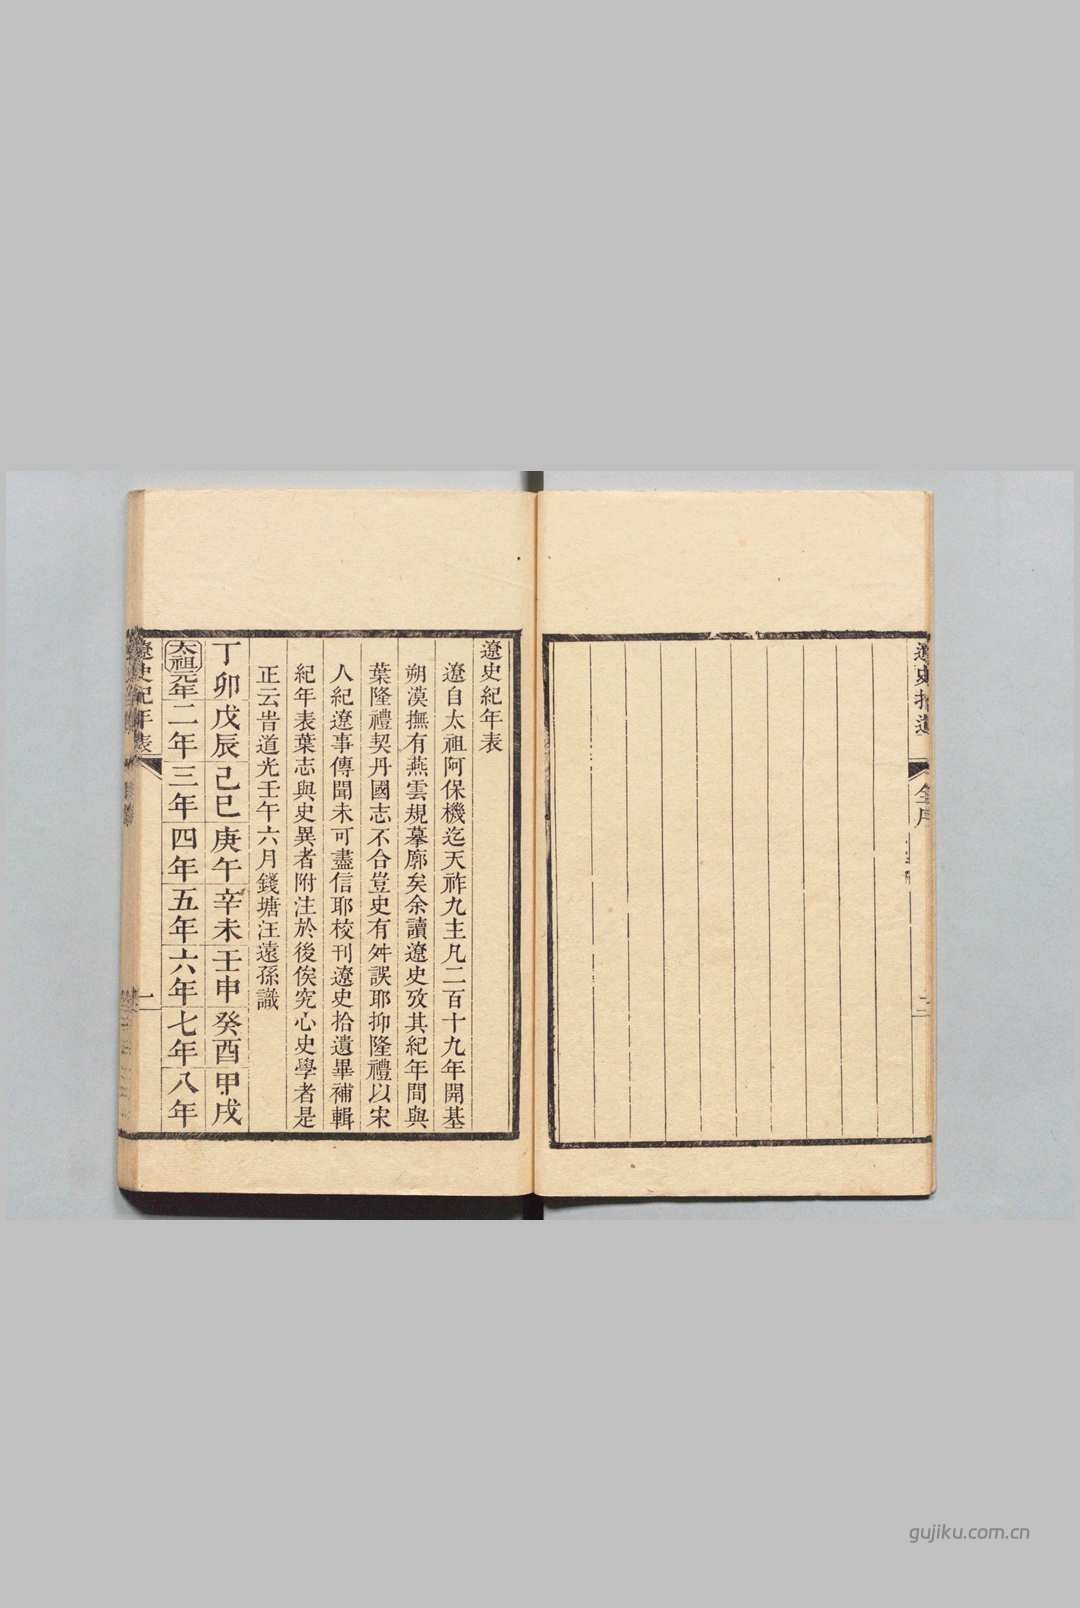 遼史拾遺
全序
遼史紀年表
遼自太祖阿保機迄天祚九主凡二百十九年開基
朔漠撫有燕雲規摹廓矣余讀遼史攷其紀年間與
葉隆禮契丹國志不合豈史有舛誤耶抑隆禮以宋
人紀遼事傳聞未可盡信耶校刊遼史拾遺畢補輯
紀年表葉志與史異者附注於後俟究心史學者是
正云旹道光壬午六月錢塘汪遠孫識
丁卯戊辰己巳庚午辛未壬申癸酉甲戌
太祖元年二年三年四年五年六年七年八年
遼史紀年表
一
gujiku.com.cn